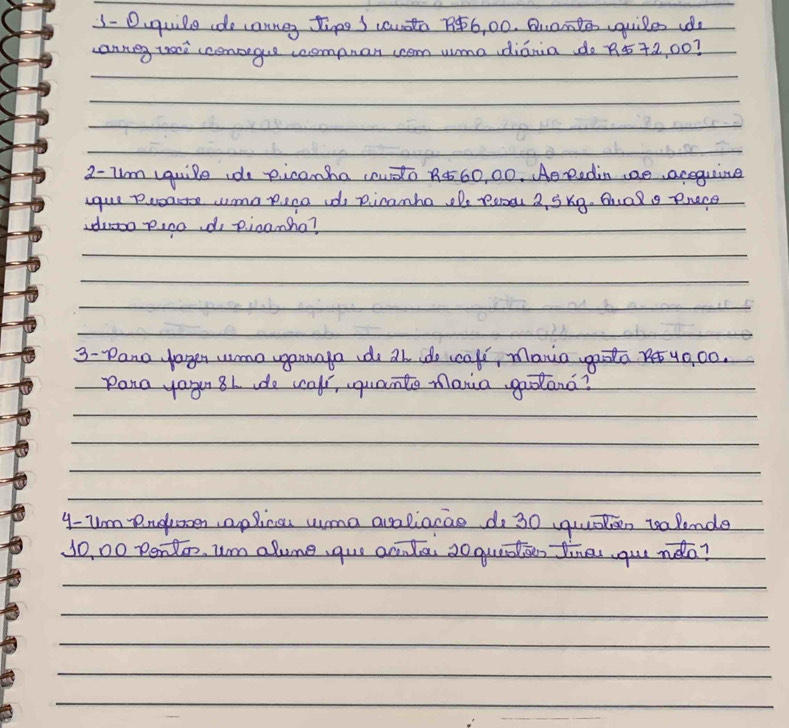 1- O quilo de arroz tipo 1 custa R$6,00. Quantos quilos de
arroz você consegue comprar com uma diária de R$72,00?
2- Um quilo de picanha custa R$60,00. Ao pedir ao açogueiro
que pesasse uma peça de picanha ele pesou 2,5 Kg. Qual o preço
dessa peça de picanha?
3- Para fazer uma garrafa de 2L de café, Maria gasta R$40,00.
Para fazer 8L de café, quanto Maria gastará?
4- Um professor aplicou uma avaliação de 30 questões valendo
10,00 pontos. Um aluno que acertou 20 questões tirou que nota?